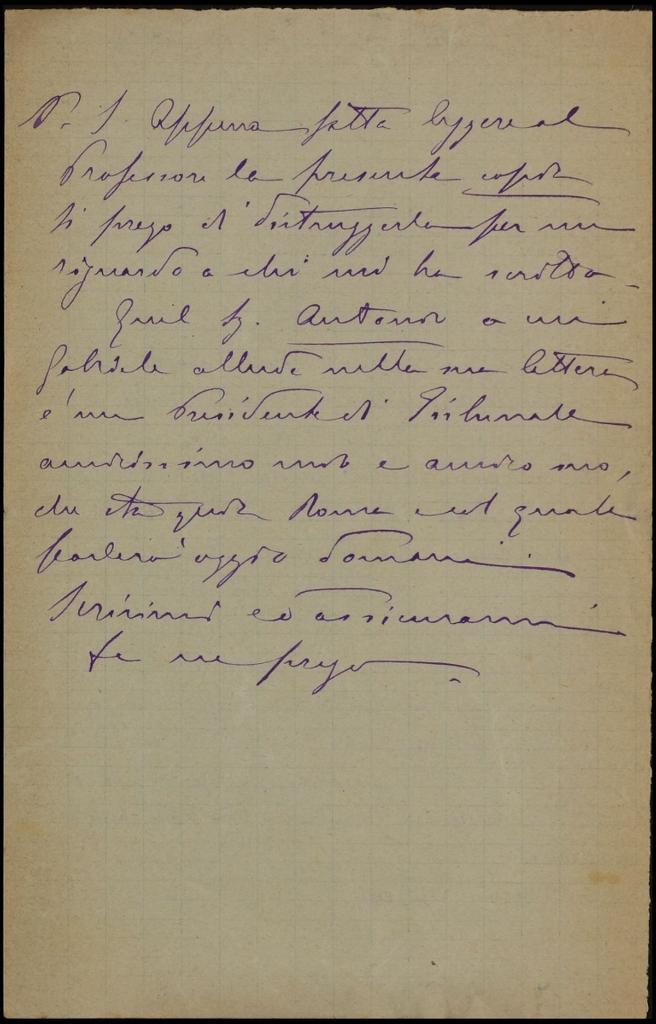 P. S. Appena fatta leggere al
Professore la presente copia
ti prego di distruggerla per un
riguardo a chi mi ha scritto -
Quel Sig. Antonio a cui
Gabriele allude nella sua lettera
è un Presidente di Tribunale
amicissimo mio e amico suo,
che sta qui a Roma e col quale
parlerò oggi o domani.
Scrivimi ed assicurami
te ne prego